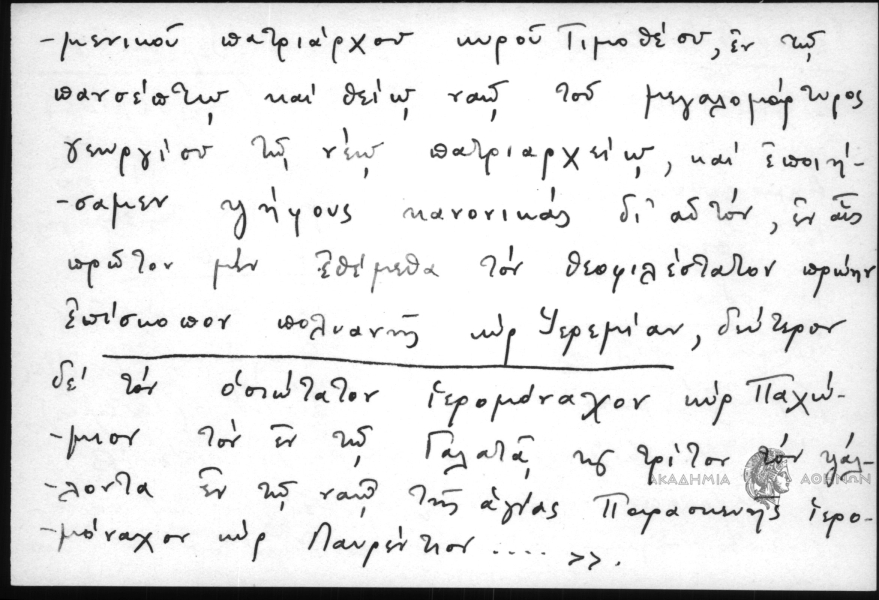 -μενικοῦ πατριάρχου κυροῦ Τιμοθέου, ἐν τῷ
πανσέπτῳ καί θείῳ ναῷ τοῦ μεγαλομάρτυρος
γεωργίου τῷ νέῳ πατριαρχείῳ, καί ἐποιή-
-σαμεν ψήφους κανονικάς δι' αὐτόν, ἐν αἷς
πρῶτον μέν ἐθέμεθα τόν θεοφιλέστατον πρώην
Ἐπίσκοπον πολυανῆς κύρ Ἱερεμίαν, δεύτερον
δέ τόν ὁσιώτατον ἱερομόναχον κύρ Παχώ-
-μιον τόν ἐν τῷ Γαλατᾷ κς τρίτον τόν ψάλ-
-λοντα ἐν τῷ ναῷ τῆς ἁγίας Παρασκευῆς ἱερο-
-μόναχον κύρ Λαυρέντιον .... >>.
ΑΚΑΔΗΜΙΑ ΑΘΗΝΩΝ